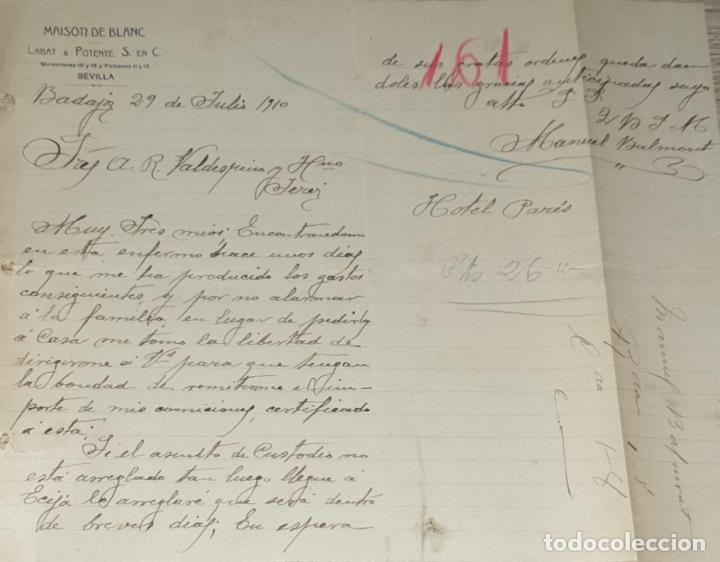 MAISON DE BLANC
LABAT & POTENTE, S. EN C.
Mercaderes 16 y 18 y Polaineros 11 y 13
SEVILLA
Badajoz 29 de Julio 1910
Sres A. R. Valdespino y Hno
Jerez
Muy Sres mios: Encontrandome
en esta, enfermo hace unos dias
lo que me ha producido los gastos
consiguientes, y por no alarmar
á la familia en lugar de pedirlo
á Casa me tomo la libertad de
dirigirme á Vs para que tengan
la bondad de remitirme el im-
porte de mis comisiones, certificado
á esta;
Si el asunto de Custodio no
está arreglado tan luego llegue á
Ecija lo arreglaré que será dentro
de breves dias; En espera
161
de sus gratas ordenes queda dan
doles las gracias anticipadas suyo
atto S. S.
Q B S M
Manuel Balmont
Hotel Paris
Pts 26 -"-
Manuel Balmont
todocoleccion.net